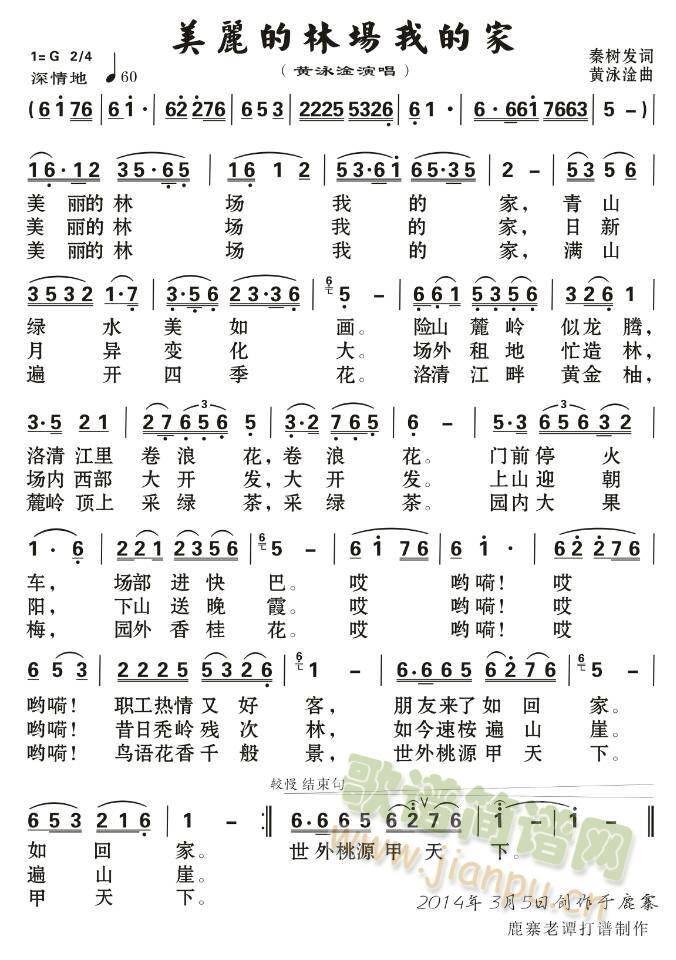 美麗的林場我的家
1=G 2/4
秦树发词
深情地 ♩60
(黄泳淦演唱)
黄泳淦曲
(6 1 76 | 6 1· | 62 276 | 6 5 3 | 2225 5326 | 6 1· | 6·661 7663 | 5 -) |
16·12 | 35·65 | 16 1 2 | 53·61 | 65·35 | 2 - | 53 56 |
美 丽的 林 场 我 的 家, 青 山
美 丽的 林 场 我 的 家, 日 新
美 丽的 林 场 我 的 家, 满 山
3532 1·7 | 3·56 23·36 | 6 5 - | 661 5356 | 3226 1 |
绿 水 美 如 画。 险山 麓 岭 似龙 腾,
月 异 变 化 大。 场外 租 地 忙造 林,
遍 开 四 季 花。 洛清 江 畔 黄金 柚,
3·5 21 | 27656 5 | 3·2 765 | 6 - | 5·3 65632 |
洛清 江里 卷 浪 花, 卷 浪 花。 门前 停 火
场内 西部 大 开 发, 大 开 发。 上山 迎 朝
麓岭 顶上 采 绿 茶, 采 绿 茶。 园内 大 果
1· 6 | 221 2356 | 6 5 - | 6 1 76 | 6 1· | 62 276 |
车, 场部 进 快 巴。 哎 哟嗬! 哎
阳, 下山 送 晚 霞。 哎 哟嗬! 哎
梅, 园外 香 桂 花。 哎 哟嗬! 哎
6 53 | 2225 5326 | 6 1 - | 6·665 6276 | 5 - |
哟嗬! 职工热情 又 好 客, 朋友来了 如 回 家。
哟嗬! 昔日秃岭 残 次 林, 如今速桉 遍 山 崖。
哟嗬! 鸟语花香 千 般 景, 世外桃源 甲 天 下。
较慢 结束句
653 2216 | 1 - :‖ 6·665 6276 | 1 - | 1 - ‖
如 回 家。 世外桃源 甲 天 下。
遍 山 崖。
甲 天 下。
歌谱简谱网
www.jianpu.cn
2014年3月5日创作于鹿寨
鹿寨老谭打谱制作